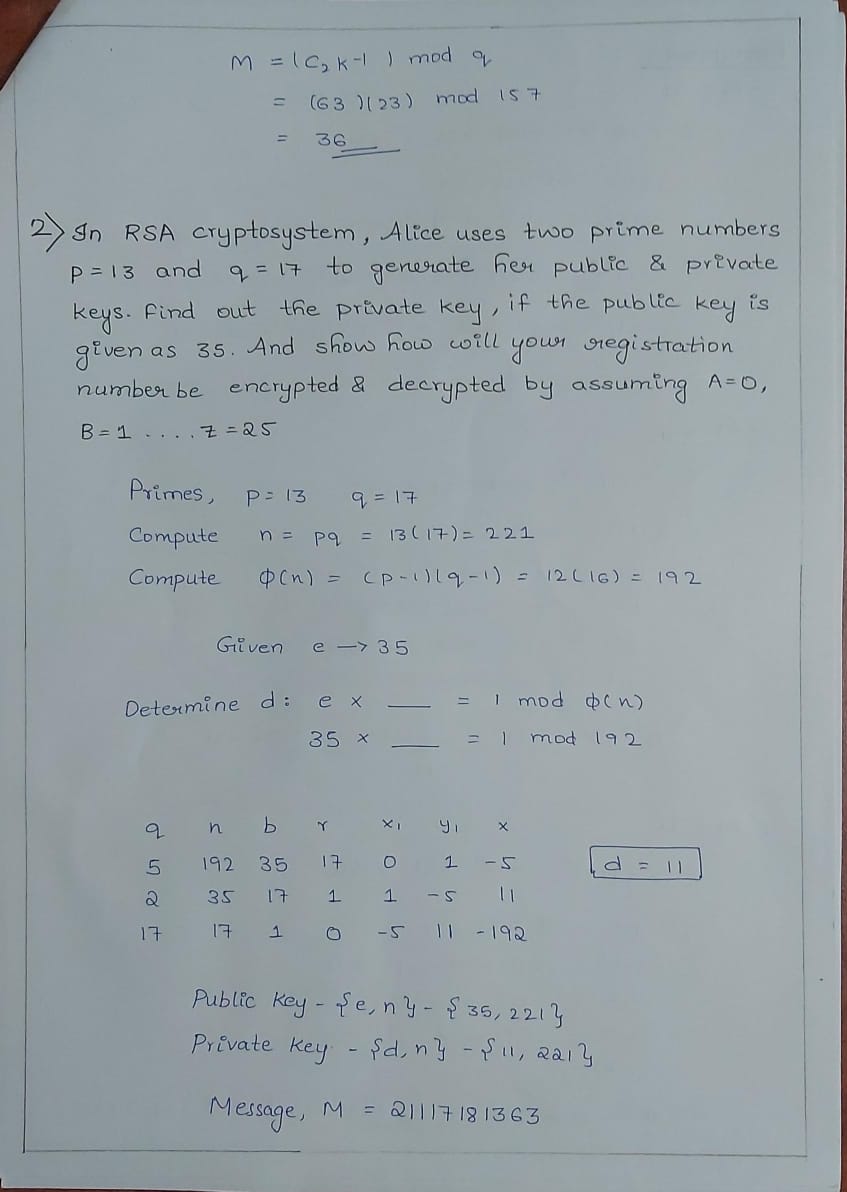 M = (C₂ K-1 ) mod q
= (63)(23) mod 157
= 36
2) In RSA cryptosystem, Alice uses two prime numbers
p = 13 and q = 17 to generate her public & private
keys. Find out the private key, if the public key is
given as 35. And show how will your registration
number be encrypted & decrypted by assuming A=0,
B=1 .... Z=25
Primes, p = 13 q = 17
Compute n = pq = 13(17) = 221
Compute ϕ(n) = (p-1)(q-1) = 12(16) = 192
Given e → 35
Determine d: e × __ = 1 mod ϕ(n)
35 × __ = 1 mod 192
q n b r x₁ y₁ x
5 192 35 17 0 1 -5
2 35 17 1 1 -5 11
17 17 1 0 -5 11 -192
d = 11
Public key - {e,n} - {35,221}
Private key - {d,n} - {11, 221}
Message, M = 21117181363